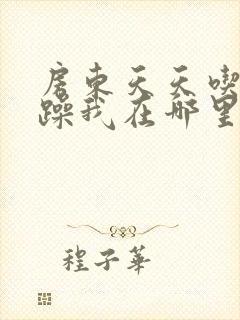 房东天天喫
躁我在哪里
程子華